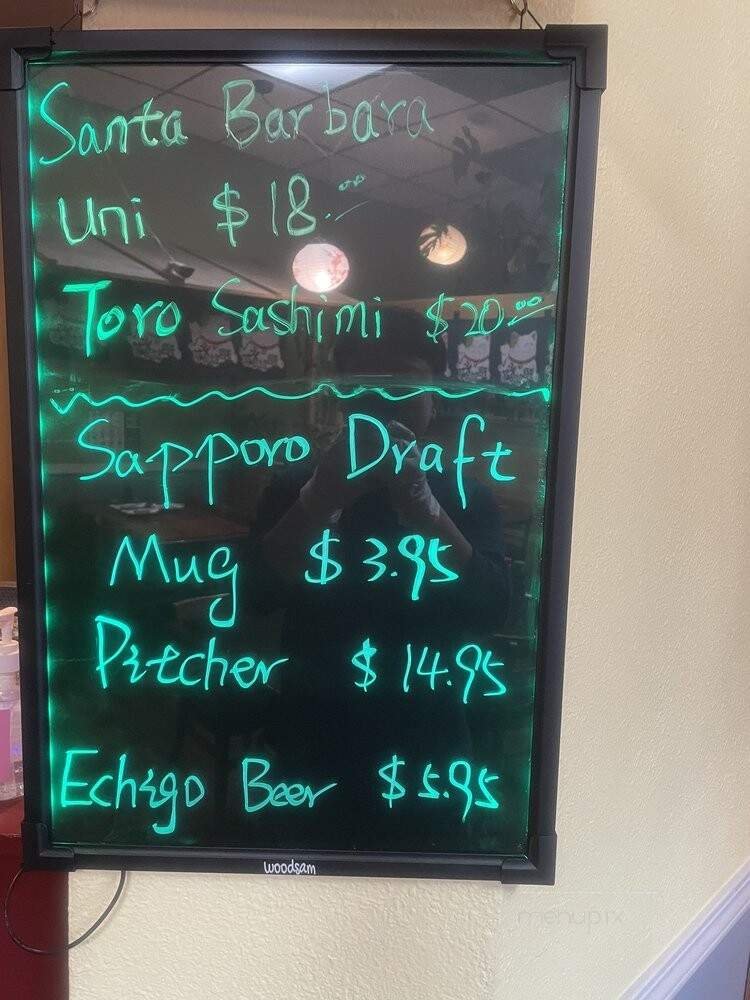 Santa Barbara
Uni $18.00
Toro Sashimi $20.00
Sapporo Draft
Mug $3.95
Pitcher $14.95
Echigo Beer $5.95
woodsam
menupix